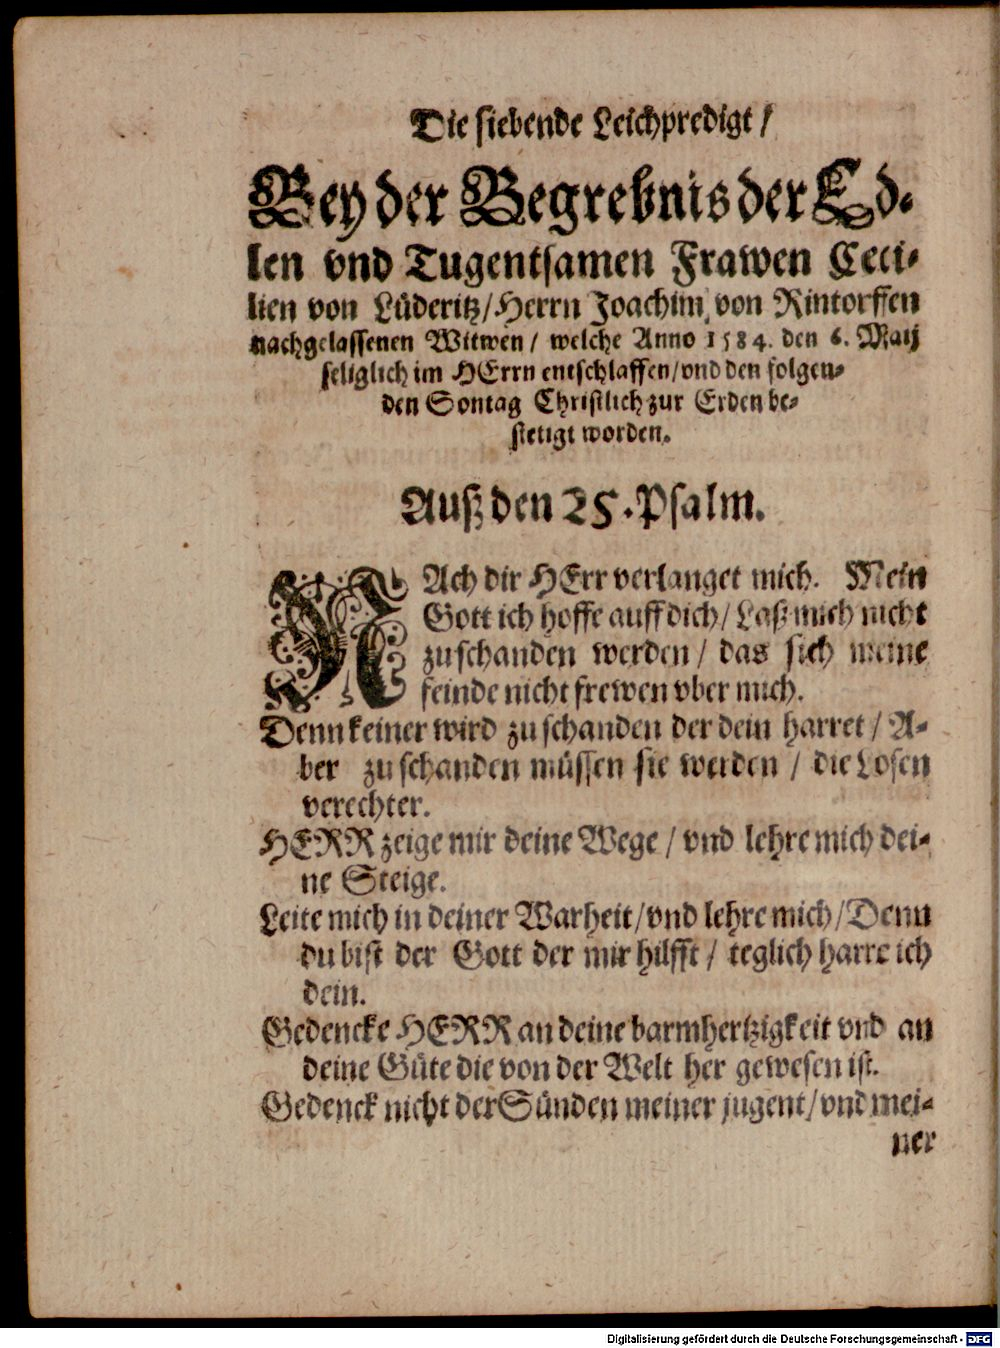 Die siebende Leichpredigt /
Bey der Begrebnis der Ed-
len vnd Tugentsamen Frawen Ceci-
lien von Lüderitz / Herrn Joachim von Rintorffen
nachgelassenen Witwen / welche Anno 1584. den 6. Maij
seliglich im HErrn entschlaffen / vnd den folgen-
den Sontag Christlich zur Erden be-
stetigt worden.
Auß den 25. Psalm.
NAch dir HErr verlanget mich. Mein
Gott ich hoffe auff dich / Laß mich nicht
zuschanden werden / das sich meine
feinde nicht frewen vber mich.
Denn keiner wird zu schanden der dein harret / A-
ber zu schanden müssen sie werden / die Losen
verechter.
HERR zeige mir deine Wege / vnd lehre mich dei-
ne Steige.
Leite mich in deiner Warheit / vnd lehre mich / Denn
du bist der Gott der mir hilfft / teglich harre ich
dein.
Gedencke HERR an deine barmhertzigkeit vnd an
deine Güte die von der Welt her gewesen ist.
Gedenck nicht der Sünden meiner jugent / vnd mei-
ner
Digitalisierung gefördert durch die Deutsche Forschungsgemeinschaft - DFG